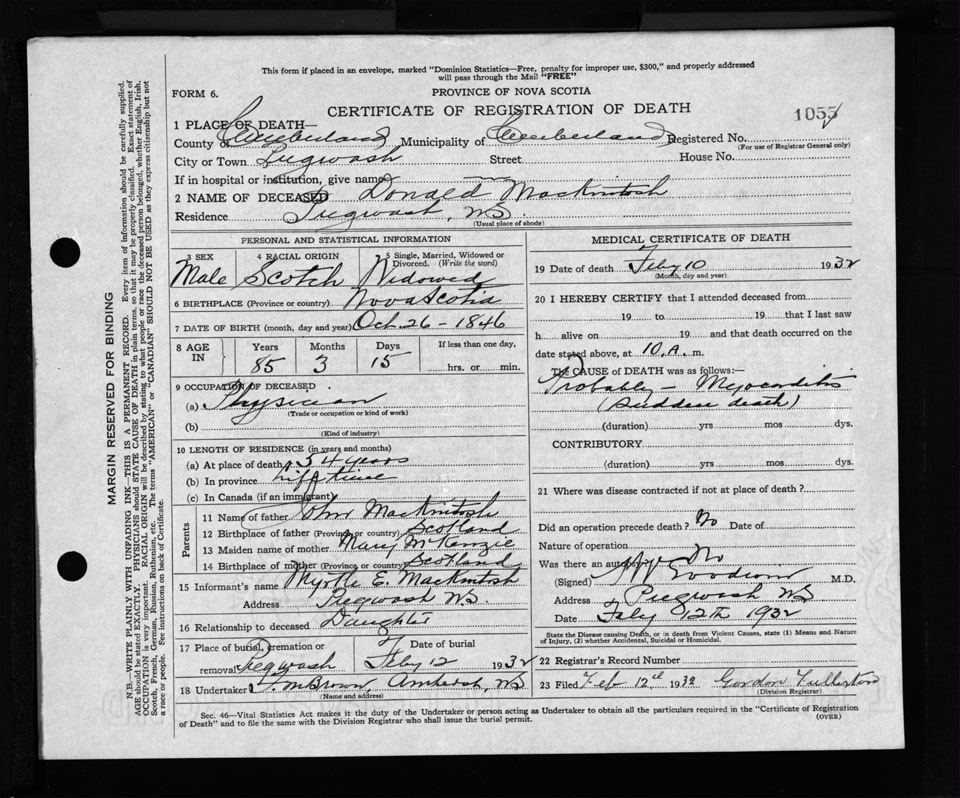 This form if placed in an envelope, marked "Dominion Statistics—Free, penalty for improper use, $300," and properly addressed
will pass through the Mail "FREE"
FORM 6.
PROVINCE OF NOVA SCOTIA
CERTIFICATE OF REGISTRATION OF DEATH
1055
1 PLACE OF DEATH—
County of Cumberland Municipality of Cumberland Registered No.
(For use of Registrar General only)
City or Town Pugwash Street House No.
If in hospital or institution, give name
2 NAME OF DECEASED Donald MacKintosh
Residence Pugwash, NS.
(Usual place of abode)
MARGIN RESERVED FOR BINDING
N.B.—WRITE PLAINLY WITH UNFADING INK—THIS IS A PERMANENT RECORD. Every item of information should be carefully supplied.
AGE should be stated EXACTLY. PHYSICIANS should STATE CAUSE OF DEATH in plain terms, so that it may be properly classified. Exact statement of
OCCUPATION is very important. RACIAL ORIGIN will be described by stating to what people or race the deceased person belonged, whether English, Irish,
Scotch, French, German, Russian, Ruthenian, etc. The terms "AMERICAN" or "CANADIAN" SHOULD NOT BE USED as they express citizenship but not
a race or people. See instructions on back of Certificate.
PERSONAL AND STATISTICAL INFORMATION
3 SEX
Male
4 RACIAL ORIGIN
Scotch
5 Single, Married, Widowed or
Divorced. (Write the word)
Widowed
6 BIRTHPLACE (Province or country) Nova Scotia
7 DATE OF BIRTH (month, day and year) Oct. 26 - 1846
8 AGE IN
Years Months Days If less than one day,
85 3 15 hrs. or min.
9 OCCUPATION OF DECEASED
(a) Physician
(Trade or occupation or kind of work)
(b)
(Kind of industry)
10 LENGTH OF RESIDENCE (in years and months)
(a) At place of death 54 years
(b) In province life time
(c) In Canada (if an immigrant)
Parents
11 Name of father John MacKintosh
12 Birthplace of father (Province or country) Scotland
13 Maiden name of mother Mary McKenzie
14 Birthplace of mother (Province or country) Scotland
15 Informant's name Myrtle E. MacKintosh
Address Pugwash NS.
16 Relationship to deceased Daughter
17 Place of burial, cremation or Date of burial
removal Pugwash Feb 12 1932
18 Undertaker Brown, Amherst, NS
(Name and address)
MEDICAL CERTIFICATE OF DEATH
19 Date of death Feby 10 1932
(Month, day and year)
20 I HEREBY CERTIFY that I attended deceased from
19 to 19 that I last saw
h alive on 19 and that death occurred on the
date stated above, at 10 A. m.
THE CAUSE of DEATH was as follows:—
Probably - Myocarditis
(sudden death)
(duration) yrs mos dys.
CONTRIBUTORY
(duration) yrs mos dys.
21 Where was disease contracted if not at place of death?
Did an operation precede death? No Date of
Nature of operation
Was there an autopsy? No
(Signed) Goodwin M.D.
Address Pugwash NS
Date Feby 12th 1932
State the Disease causing Death, or in death from Violent Causes, state (1) Means and Nature
of Injury, (2) whether Accidental, Suicidal or Homicidal.
22 Registrar's Record Number
23 Filed Feb 12th 1932 Gordon Fullerton
(Division Registrar)
Sec. 46—Vital Statistics Act makes it the duty of the Undertaker or person acting as Undertaker to obtain all the particulars required in the "Certificate of Registration
of Death" and to file the same with the Division Registrar who shall issue the burial permit.
(OVER)